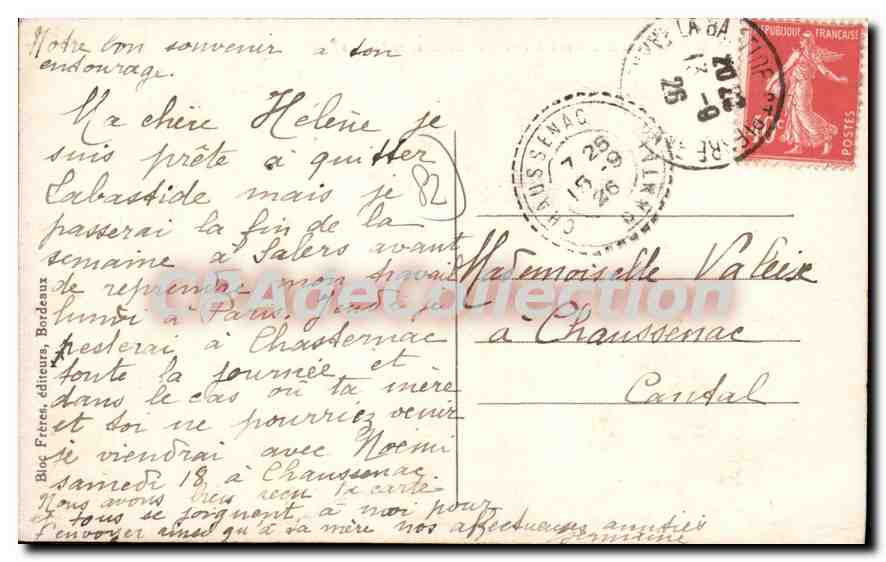 Notre bon souvenir à ton
entourage.
Ma chère Hélène je
suis prête à quitter
Labastide mais je
passerai la fin de la
semaine à Salers avant
de reprendre mon travail
lundi à Paris. Jeudi je
resterai à Chasternac
toute la journée et
dans le cas où ta mère
et toi ne pourriez venir
je viendrai avec Noémi
samedi 18 à Chaussenac
Nous avons bien reçu ta carte
et tous se joignent à moi pour
t'envoyer ainsi qu'à ta mère nos affectueuses amitiés
Germaine
82
Bloc Frères, éditeurs, Bordeaux
CHAUSSENAC
7 26
15 -9
26
CANTAL
LA BA
13
-9
26
REPUBLIQUE FRANÇAISE
POSTES
Mademoiselle Valeix
à Chaussenac
Cantal
CPAdeCollection